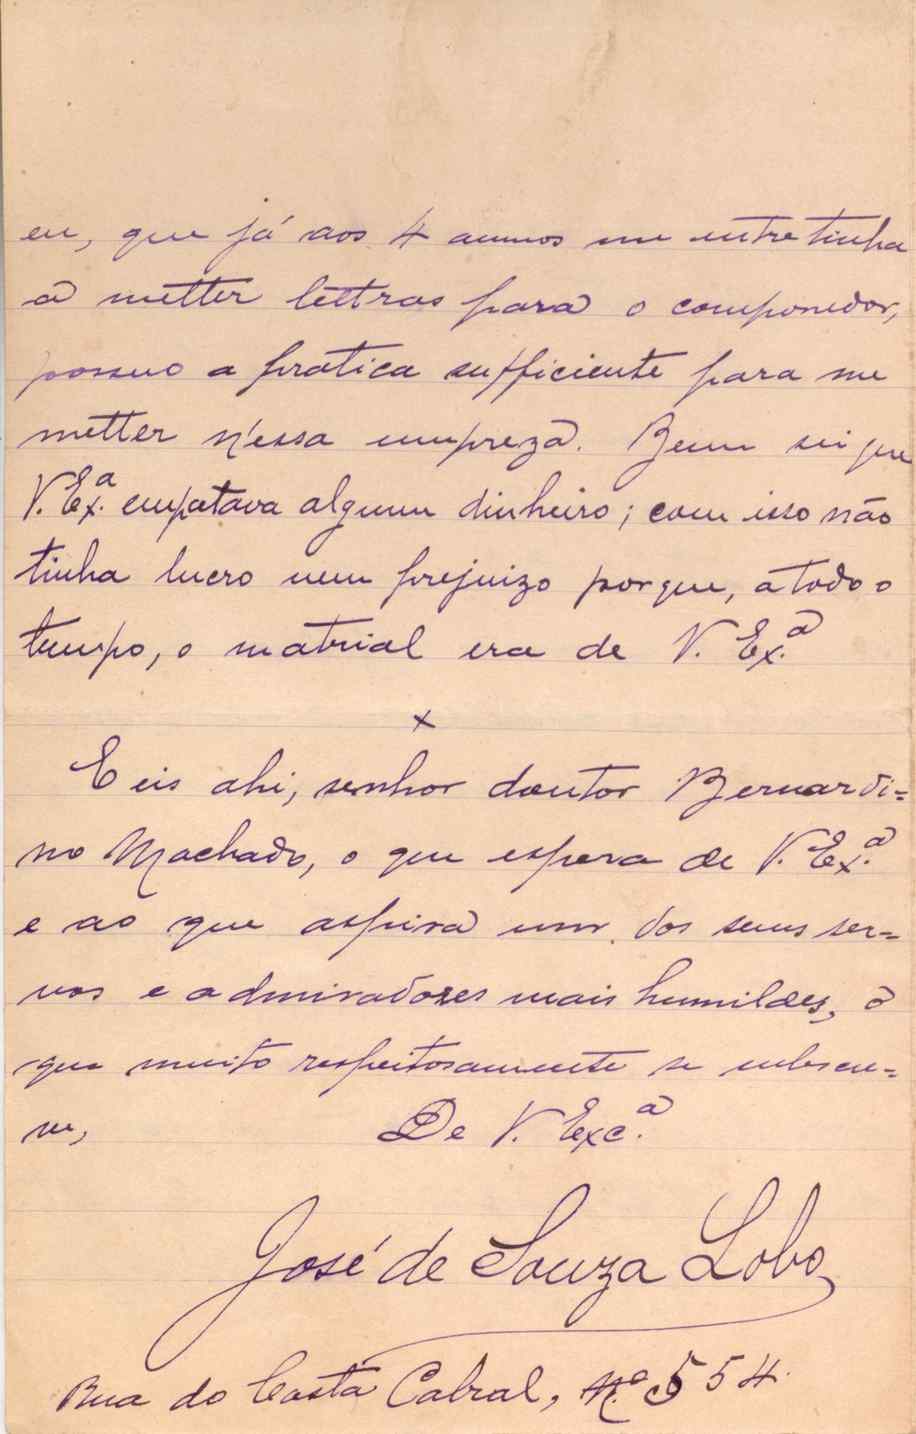 eu, que já aos 4 annos me entretinha
a metter lettras para o componedor,
possuo a pratica sufficiente para me
metter n'essa empreza. Bem sei que
V. Ex.ª empatava algum dinheiro; com isso não
tinha lucro nem prejuizo porque, a todo o
tempo, o matrial era de V. Ex.ª
x
E eis ahi, senhor doutor Bernardi=
no Machado, o que espera de V. Ex.ª
e ao que aspira um dos seus ser=
vos e admiradores mais humildes, o
que muito respeitosamente se subscre=
ve, De V. Exc.ª
José de Souza Lobo
Rua do Costa Cabral, N.º 554.